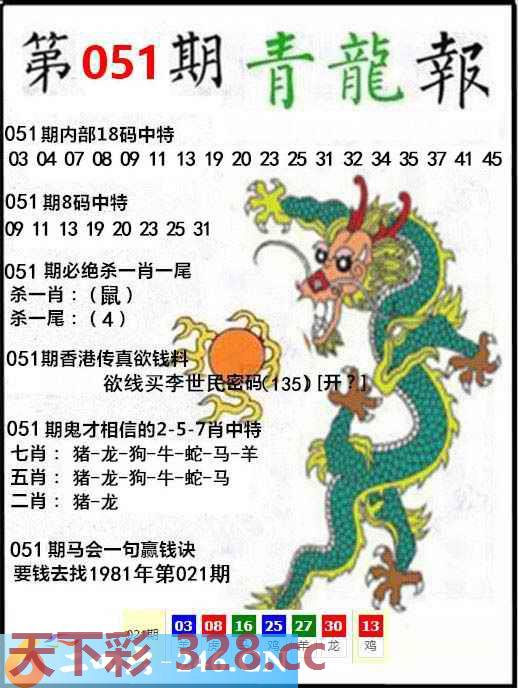 第051期青龍報
051期内部18码中特
03 04 07 08 09 11 13 19 20 23 25 31 32 34 35 37 41 45
051期8码中特
09 11 13 19 20 23 25 31
051期必绝杀一肖一尾
杀一肖：(鼠)
杀一尾：(4)
051期香港传真欲钱料
欲线买李世民密码(135)[开?]
051期鬼才相信的2-5-7肖中特
七肖：猪-龙-狗-牛-蛇-马-羊
五肖：猪-龙-狗-牛-蛇-马
二肖：猪-龙
051期马会一句赢钱诀
要钱去找1981年第021期
021期 03 08 16 25 27 30 13
鸡 羊 龙 鸡
天下彩-328.cc